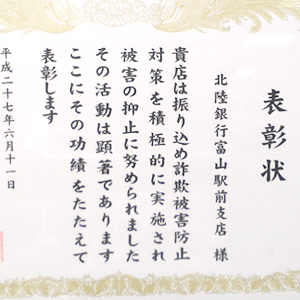 表彰状
北陸銀行富山駅前支店 様
貴店は振り込め詐欺被害防止
対策を積極的に実施され
被害の抑止に努められました
その活動は顕著であります
ここにその功績をたたえて
表彰します
平成二十七年六月十一日